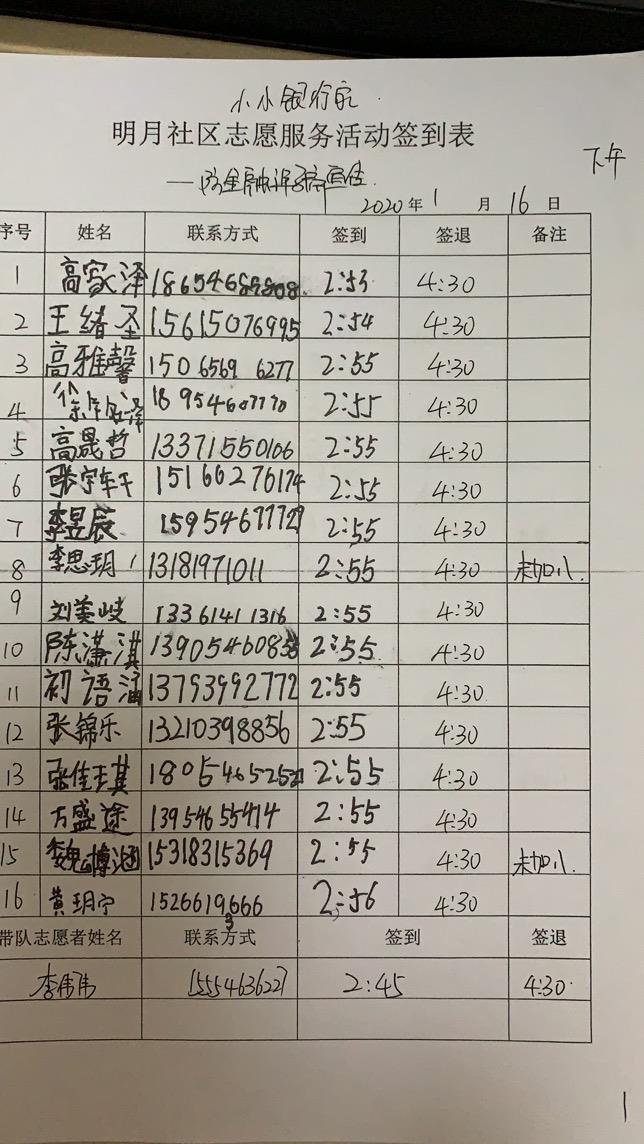 小小银行家
明月社区志愿服务活动签到表
下午
2020年1月16日
序号 姓名 联系方式 签到 签退 备注
1 高家泽 2:53 4:30
2 王绪圣 15615076995 2:54 4:30
3 高雅馨 150 6569 6277 2:55 4:30
4 18954607770 2:55 4:30
5 高晟哲 13371550106 2:55 4:30
6 15166276174 2:55 4:30
7 李昱辰 15954677727 2:55 4:30
8 李思玥 13181971011 2:55 4:30 未加入.
9 刘姜岐 13361411316 2:55 4:30
10 陈潇淇 2:55 4:30
11 初语涵 13793992772 2:55 4:30
12 张锦乐 13210398856 2:55 4:30
13 张佳琪 2:55 4:30
14 方盛途 13954655414 2:55 4:30
15 魏博涵 15318315369 2:55 4:30 未加入.
16 黄玥宁 15266193666 2:56 4:30
带队志愿者姓名 联系方式 签到 签退
李伟伟 15554636227 2:45 4:30
1